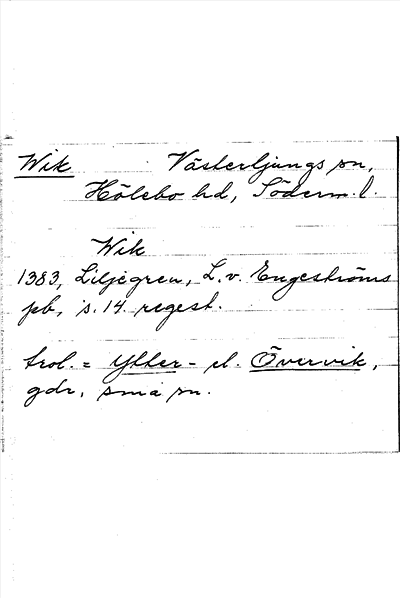 Wik Västerljungs sn,
Hölebo hd, Söderm. l.
Wik
1383, Liljegren, L. v. Engeströms
pb, s. 14 regest.
trol. = Ytter- el. Övervik,
gdr, sma sn.